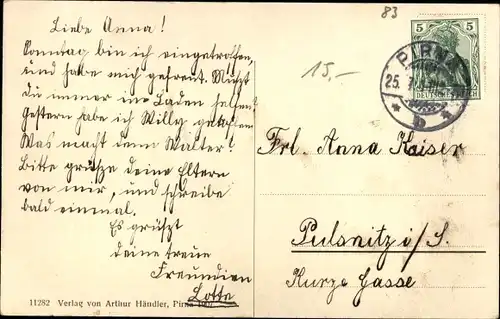 83
Liebe Anna!
Sonntag bin ich eingetroffen,
und habe mich gefreut. Mußt
du immer im Laden helfen?
Gestern habe ich Willy getroffen
Was macht denn Walter?
Bitte grüße deine Eltern
von mir, und schreibe
bald einmal.
Es grüßt
deine treue
Freundien
Lotte
11282 Verlag von Arthur Händler, Pirna
15,-
5 5
PIRNA
25.
* b *
Frl. Anna Kaiser
Pulsnitz i/S.
Kurze Gasse